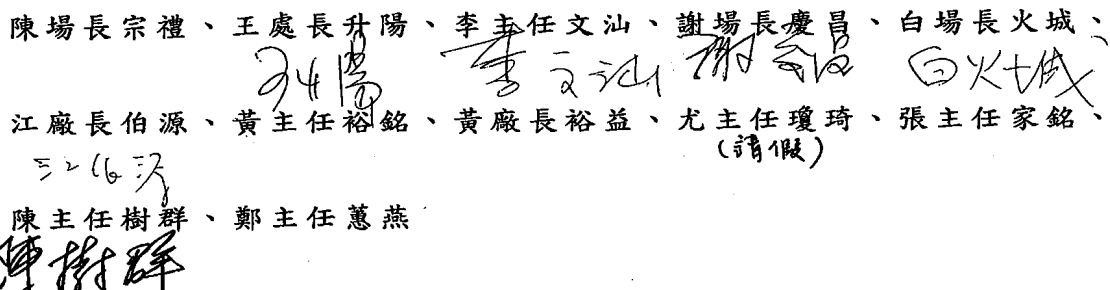 陳場長宗禮、王處長升陽、李主任文汕、謝場長慶昌、白場長火城、
王升陽 李文汕 謝慶昌 白火城
江廠長伯源、黃主任裕銘、黃廠長裕益、尤主任瓊琦、張主任家銘、
江伯源 (請假)
陳主任樹群、鄭主任蕙燕
陳樹群